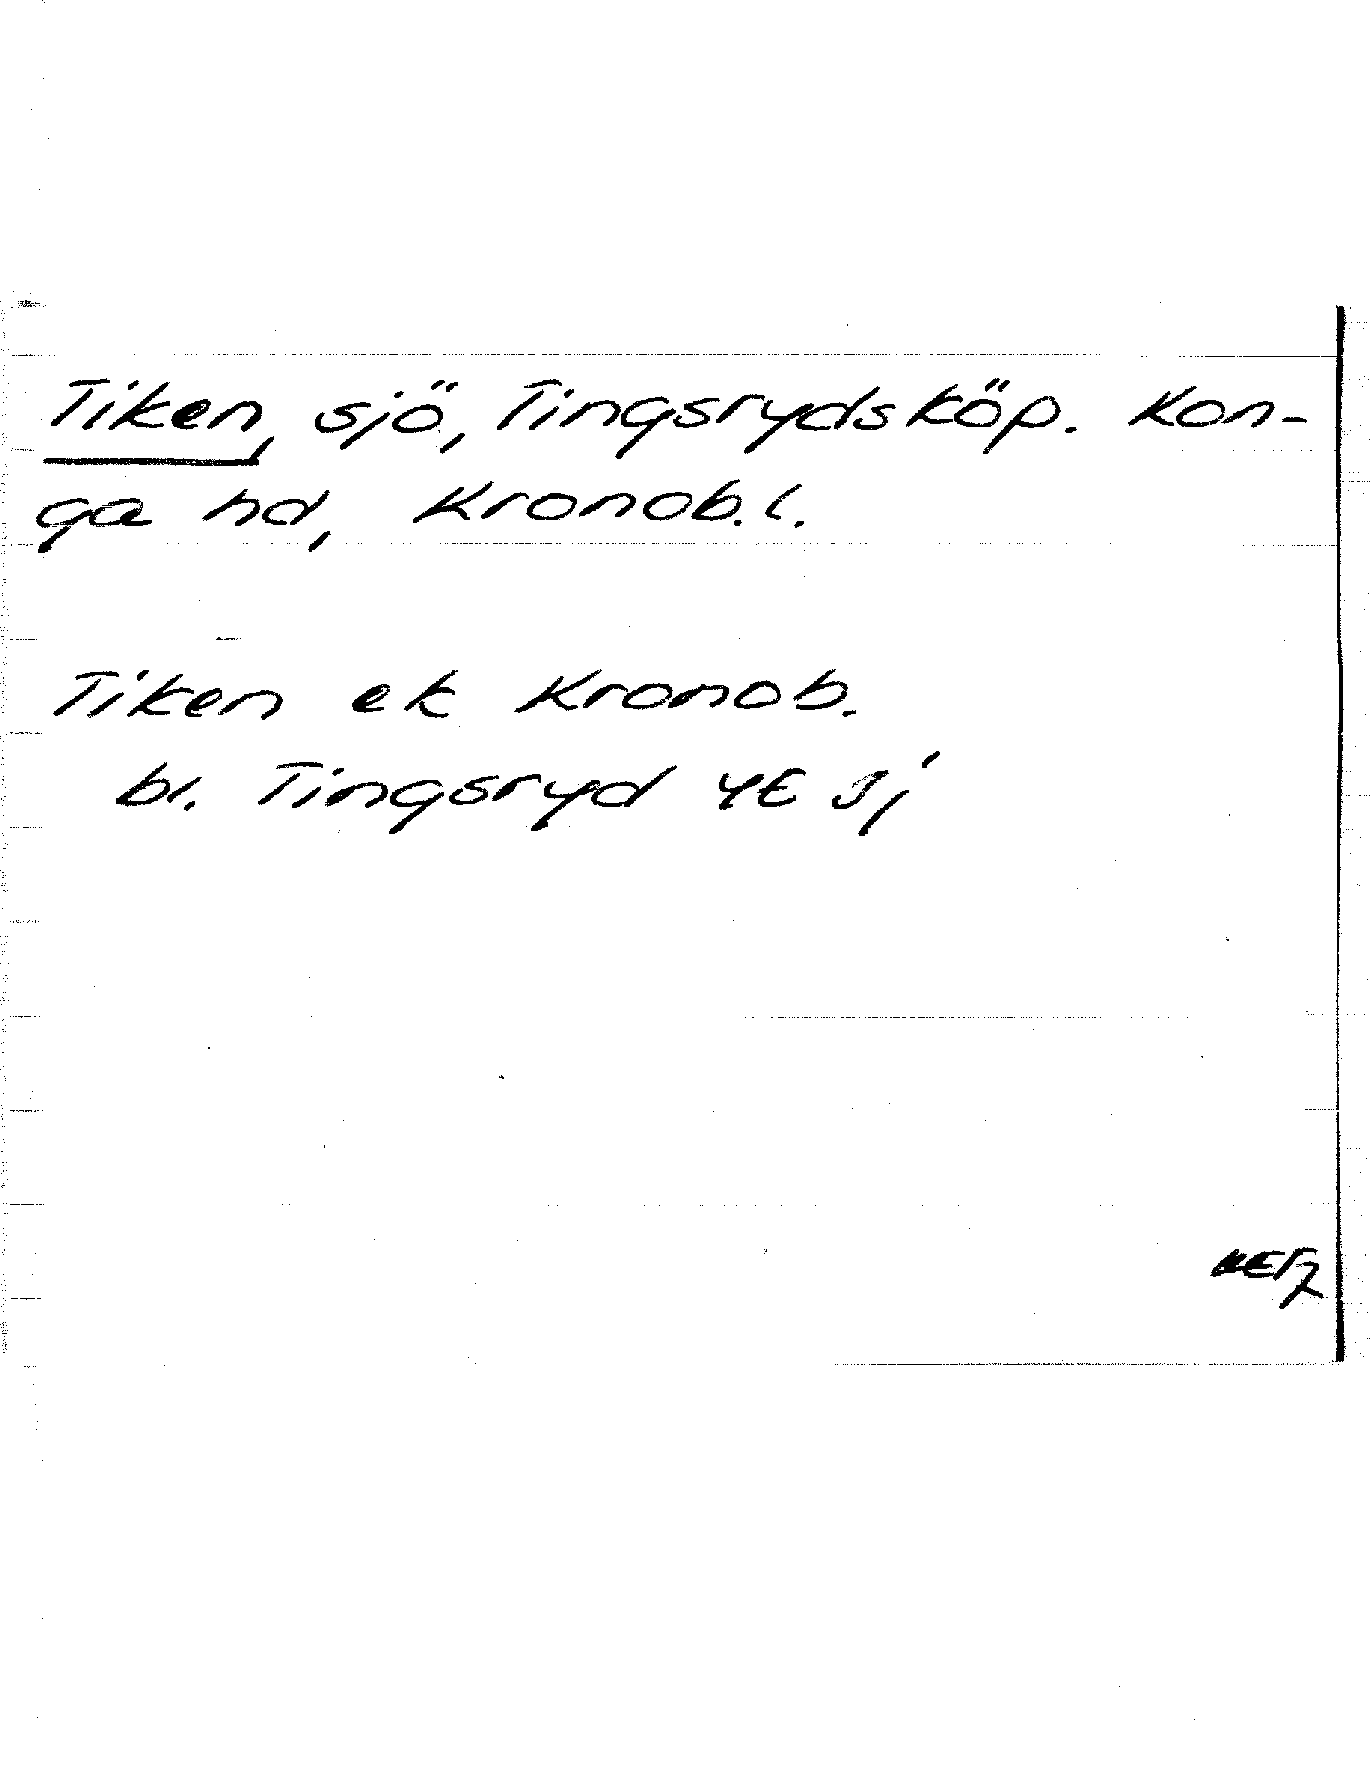 Tiken, sjö, Tingsryds köp. Kon-
ga hd, Kronob. l.
Tiken ek Kronob.
bl. Tingsryd 4E Sj